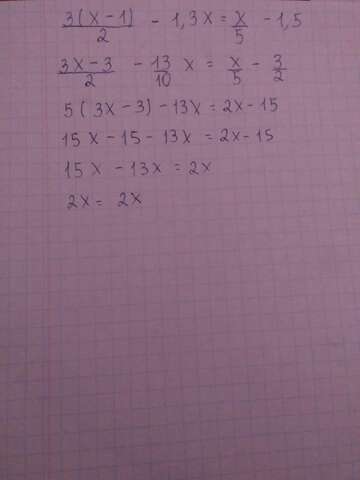 3(x-1)/2 - 1,3x = x/5 - 1,5
3x-3/2 - 13/10 x = x/5 - 3/2
5(3x-3)-13x = 2x-15
15x-15-13x = 2x-15
15x-13x = 2x
2x = 2x